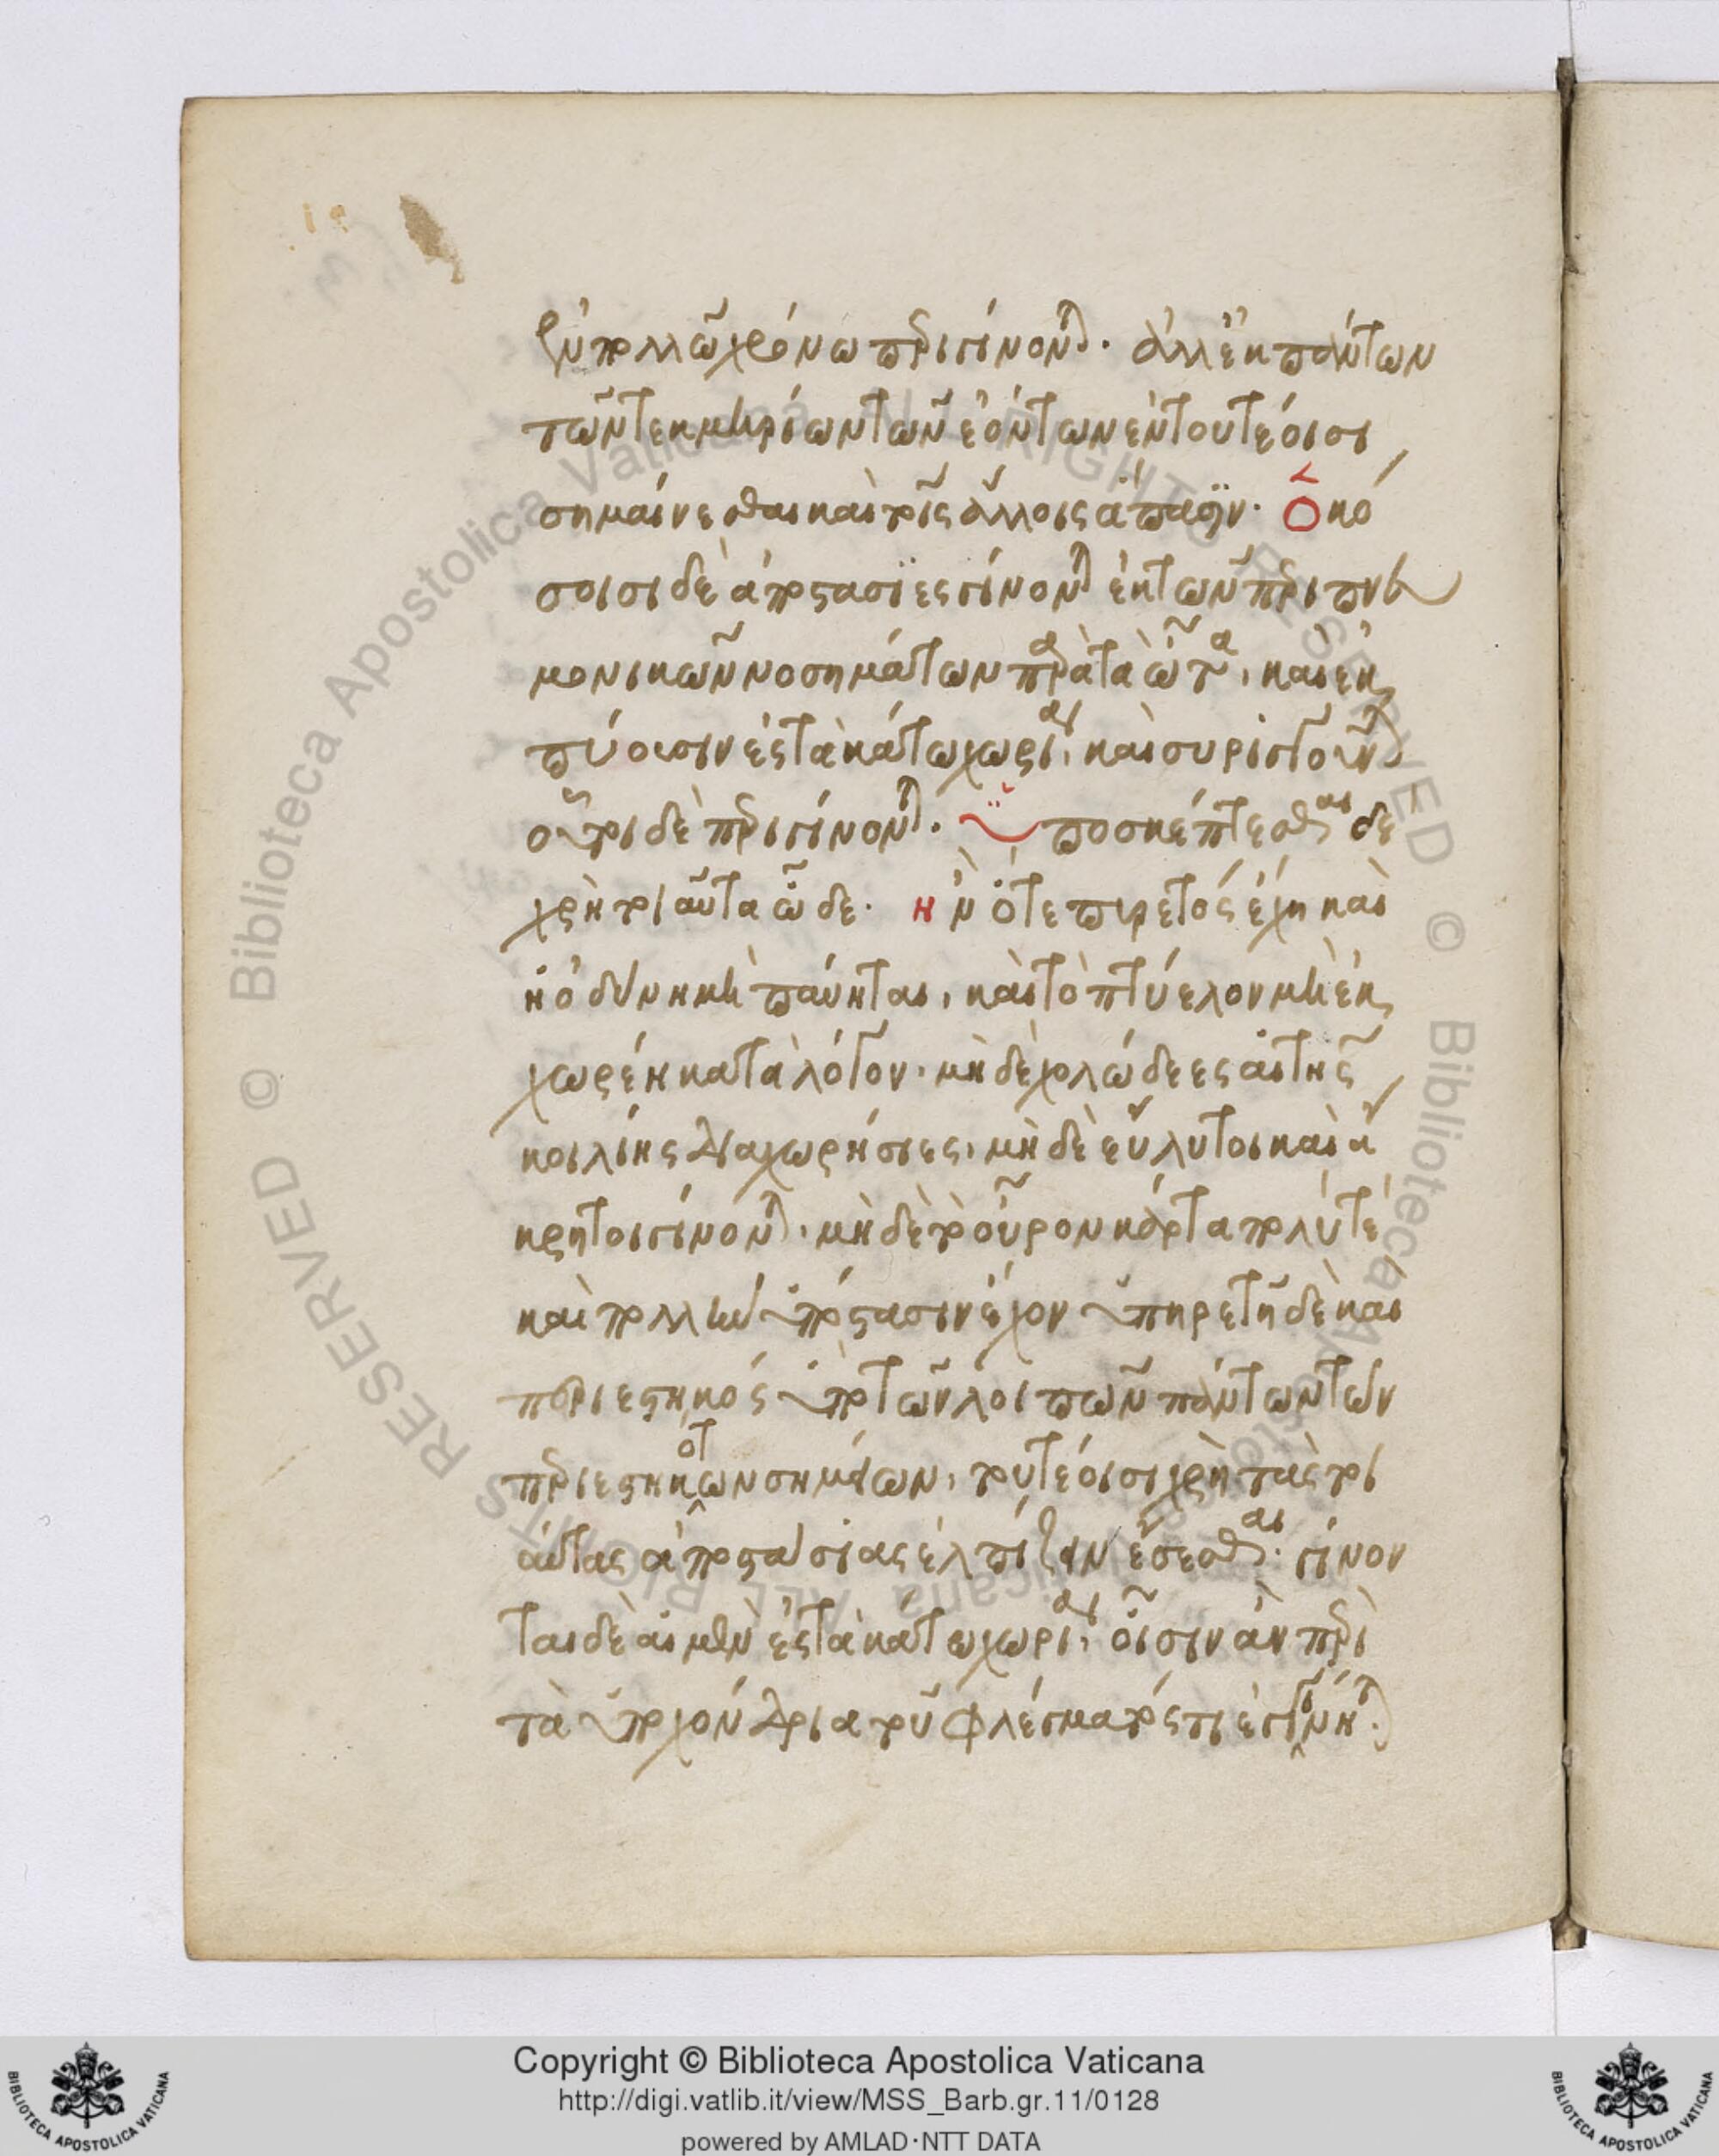 ξὺν πολλῶ χρόνω περιγίνονται. ἀλλ' ἐκ πάντων
τῶν τεκμηρίων τῶν ἐόντων ἐν τουτέοισι
σημαίνεσθαι καὶ τοῖς ἄλλοις ἅπασιν. Ὁκό
σοισι δὲ ἀποστάσϊες γίνονται ἐκ τῶν περιπνευ
μονικῶν νοσημάτων παρὰ τὰ ὦτα, καὶ ἐκ
πύοισιν ἐς τὰ κάτω χωρία, καὶ συριγγοῦνται
οὗτοι δὲ περιγίνονται. ὑποσκέπτεσθαι δὲ
χρὴ τοιαῦτα ὧδε. ἢν ὅτε πυρετὸς ἔχη καὶ
ἡ ὀδύνη μὴ παύηται, καὶ τὸ πτύελον μὴ ἐκ
χωρέη κατὰ λόγον. μὴ δὲ χολώδεες αἱ τῆς
κοιλίης διαχωρήσιες, μὴ δὲ εὔλυτοι καὶ ἄ
κρητοι γίνονται, μὴ δὲ τὸ οὖρον κάρτα πολύ τε
καὶ πολλὴν ὑπόστασιν ἔχον ὑπηρετῆ δὲ καὶ
περιεστηκός ὑπὸ τῶν λοιπῶν πάντων τῶν
περιεστηκότων σημείων, τουτέοισι χρὴ τὰς τοι
αύτας ἀποστασίας ἐλπίζειν ἔσεσθαι. γίνον
ται δὲ αἱ μὲν ἐς τὰ κάτω χωρία, οἷσιν ἂν περὶ
τὰ ὑποχόνδρια τοῦ φλέγματός τι ἐγγίνηται.
Copyright © Biblioteca Apostolica Vaticana
http://digi.vatlib.it/view/MSS_Barb.gr.11/0128
powered by AMLAD·NTT DATA